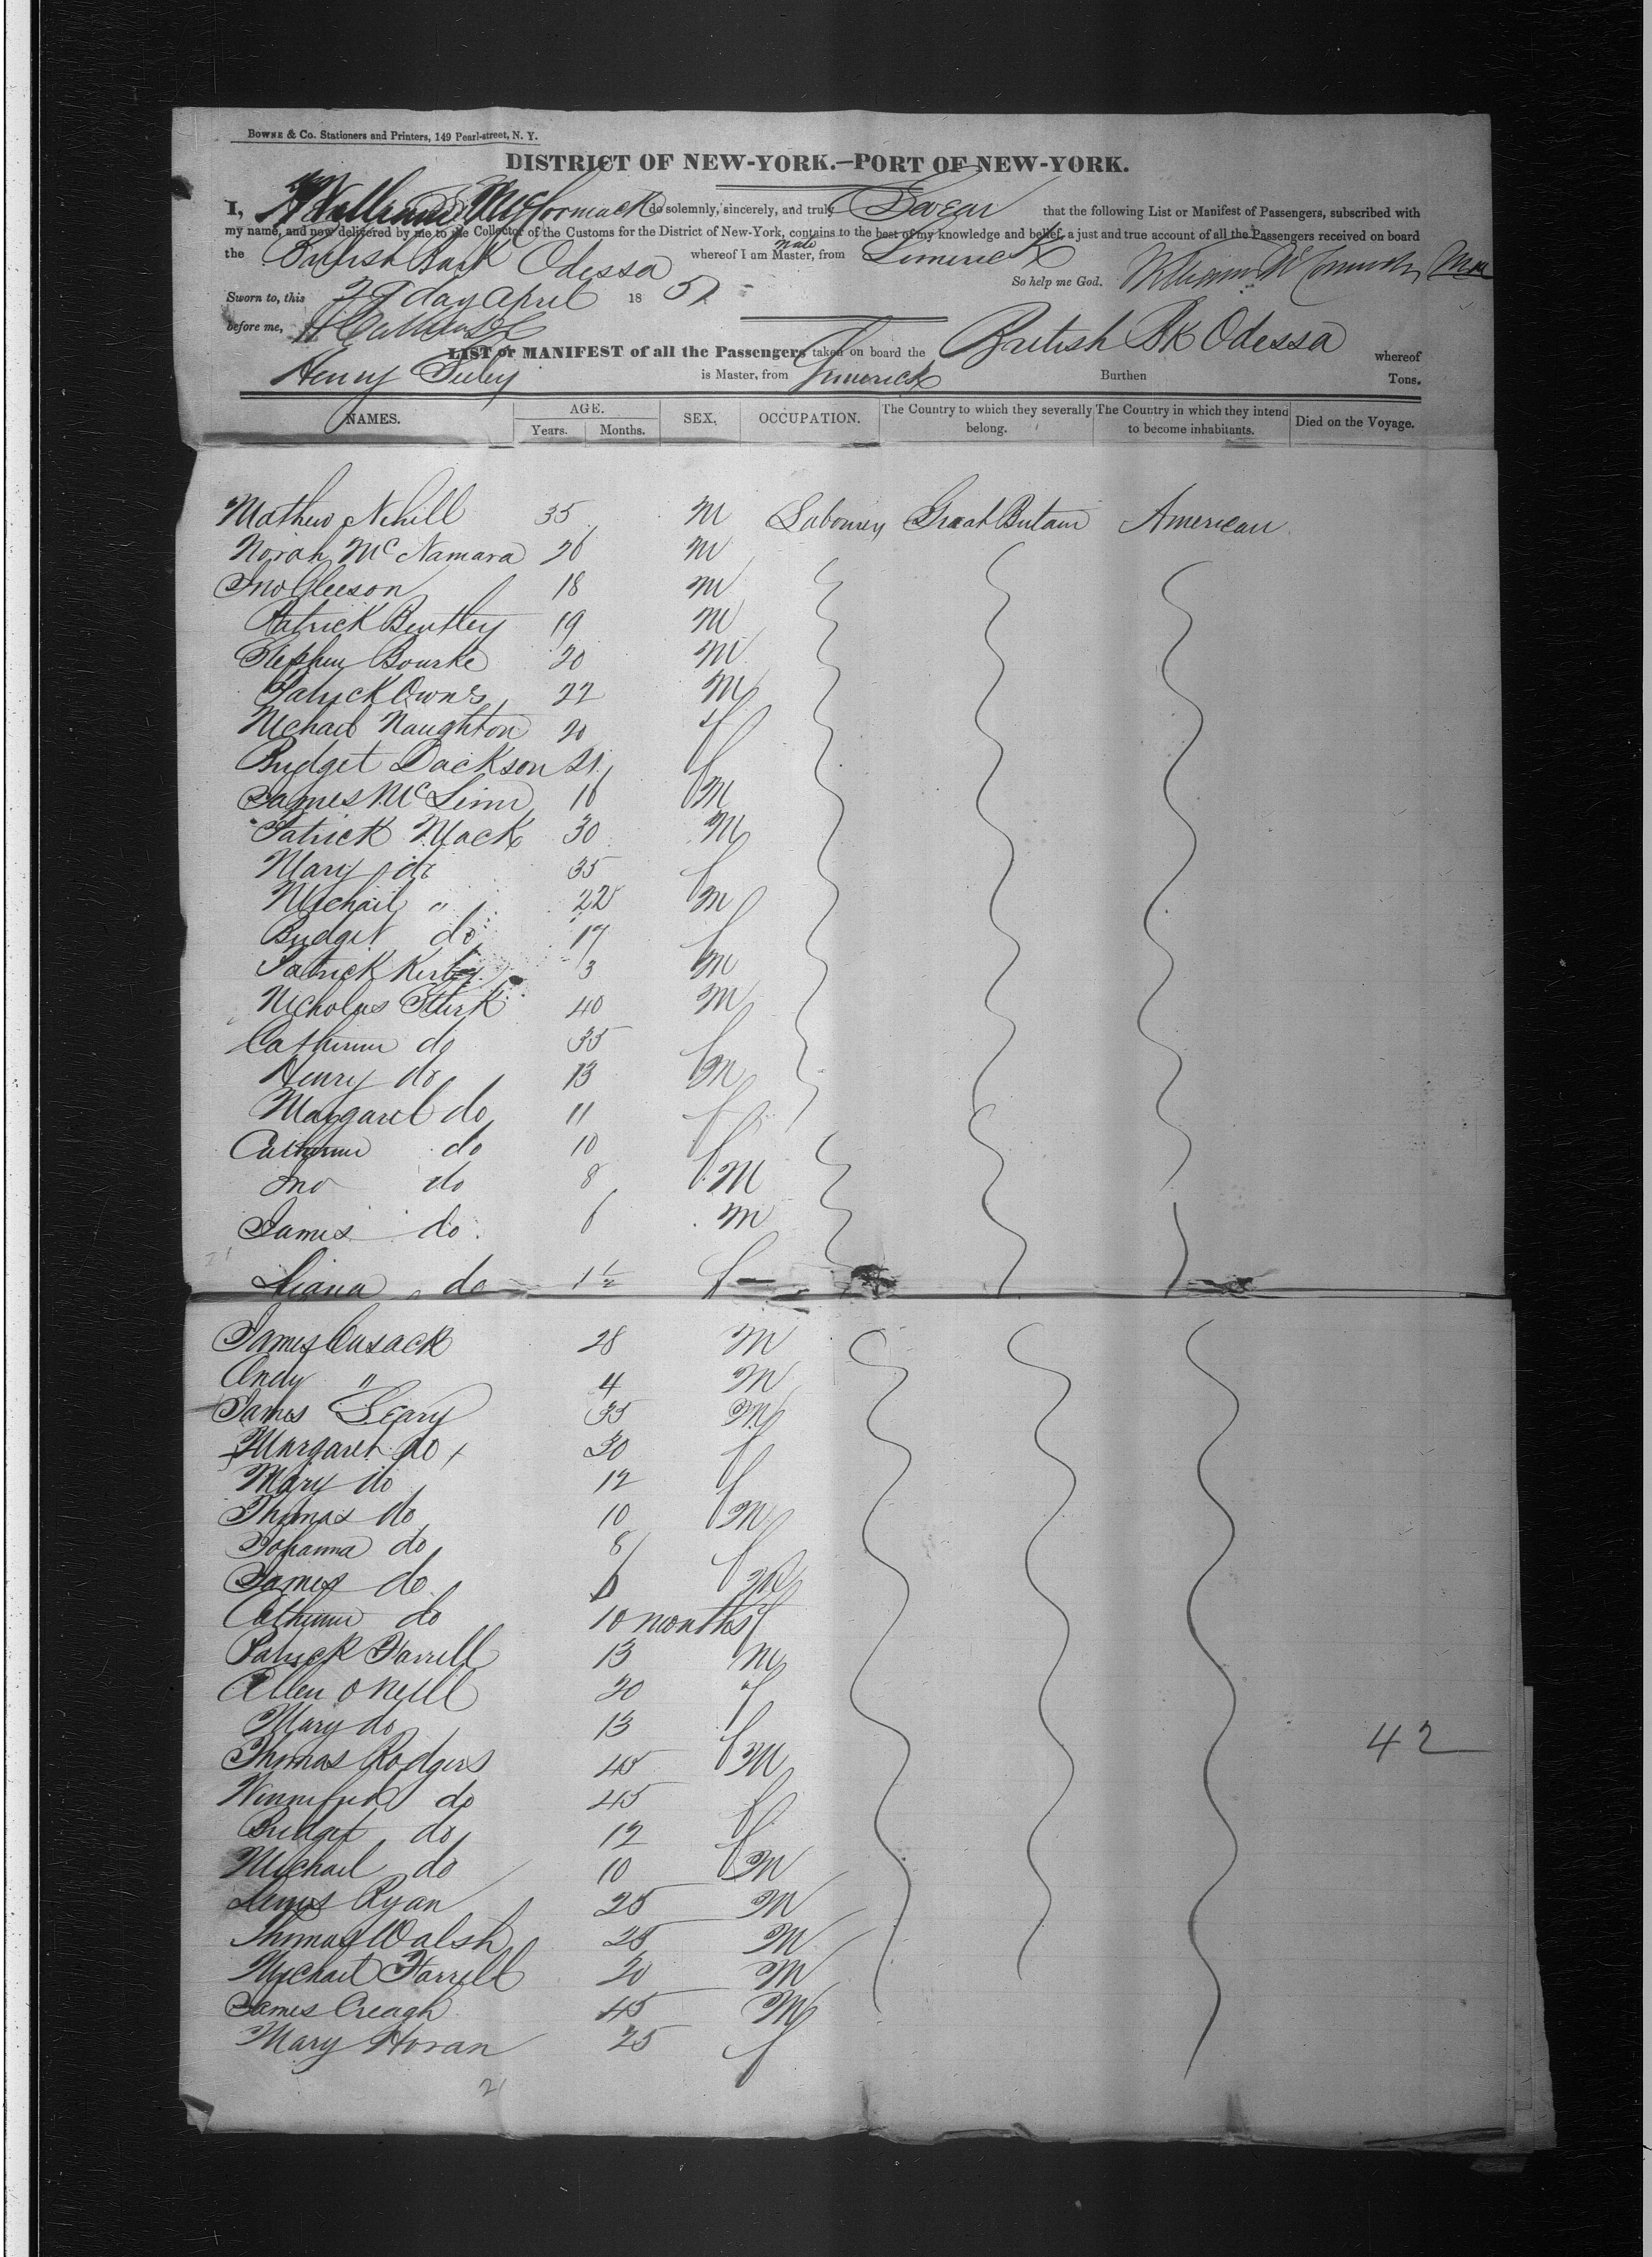 BOWNE & Co. Stationers and Printers, 149 Pearl-street, N. Y.
DISTRICT OF NEW-YORK.—PORT OF NEW-YORK.
I, William McCormack do solemnly, sincerely, and truly Swear that the following List or Manifest of Passengers, subscribed with
my name, and now delivered by me to the Collector of the Customs for the District of New-York, contains to the best of my knowledge and belief, a just and true account of all the Passengers received on board
the British Bark Odessa whereof I am Master, Mate from Limerick
So help me God. William McCormack Mate
Sworn to, this 29 day April 18 51
before me,
LIST or MANIFEST of all the Passengers taken on board the British Bk Odessa whereof
Henry is Master, from Limerick Burthen Tons.
NAMES. AGE. Years. Months. SEX, OCCUPATION. The Country to which they severally belong. The Country in which they intend to become inhabitants. Died on the Voyage.
Mathew Nihill 35 M Great Britain American
Norah Mc Namara 26 M
Jno Gleeson 18 M
Patrick Bentley 19 M
Stephen Bourke 20 M
Patrick Owns 22 M
Michael Naughton 20
Bridget Dackson 21 f
James McLinn 16 M
Patrick Mack 30 M
Mary do 35 f
Michail " 22 M
Bridget do 17 f
Patrick Kirby 3 M
Nicholas Sturk 40 M
Catherine do 35 f
Henry do 13 M
Margaret do 11 f
Catherine do 10 f
Jno do 8 M
James do 6 M
do 1½ f
James Cusack 28 M
Andy " 4 M
James Leary 35 M
Margaret do 30 f
Mary do 12 f
Thomas do 10 M
Johanna do 8 f
James do 6 M
Catherine do 10 months f
Patrick Farrell 13 M
Ellen O Neill 20 f
Mary do 13 f
Thomas Rodgers 45 M
Winnifred do 45 f
Bridget do 12 f
Michael do 10 M
Ryan 25 M
Thomas Walsh 25 M
Michael Farrell 20 M
James Creagh 45 M
Mary Horan 25 f
42
21